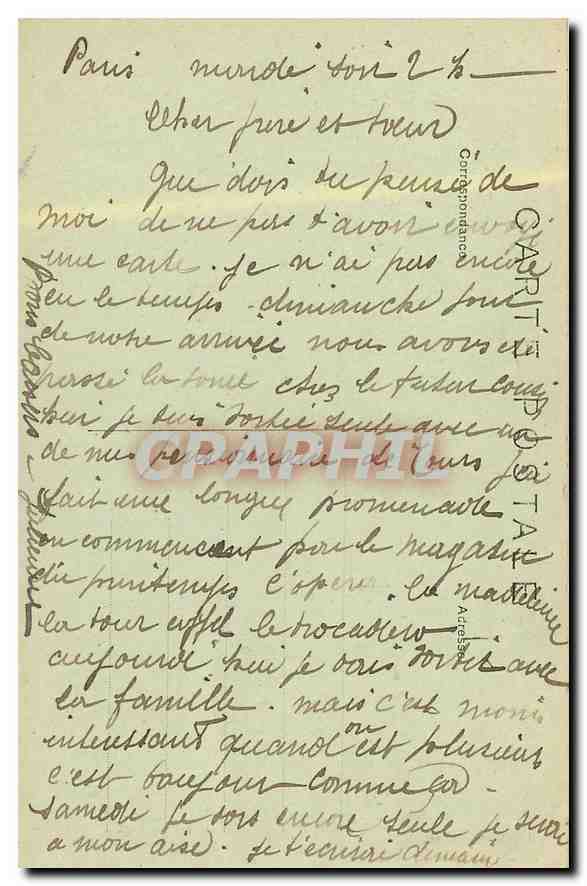 Paris merdi soir 2 h
Cher frere et soeur
Que dois tu pensé de
moi de ne pas t'avoir envoyé
une carte. Je n'ai pas encore
eu le temps. dimanche jour
de notre arrivée nous avons été
passé la soiré chez le futur cousin
hier je suis sortie seule avec un
de mes pensionnaire de Tours j'ai
fait une longue promenade
en commencent par le magasin
du printemps l'opera. la madeleine
la tour eiffel le trocadero
aujourd'hui je vais sortir avec
la famille. mais c'est moins
interessant quand on est plusieurs
c'est toujour comme ça.
samedi je sors encore seule je serai
a mon aise. Je t'écrirai demain
bons baisers
CARTE POSTALE
Correspondance
Adresse
CPAPHIL